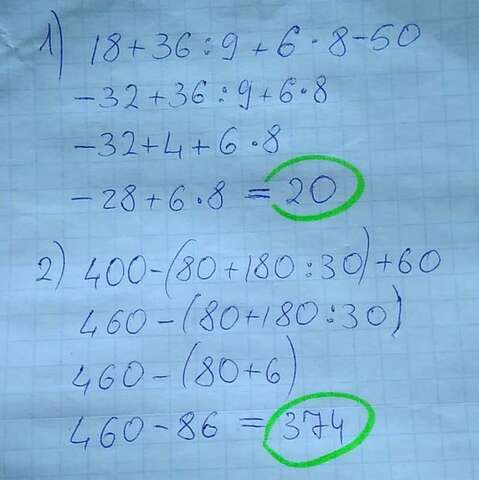 1) 18+36:9+6·8-50
-32+36:9+6·8
-32+4+6·8
-28+6·8=20
2) 400-(80+180:30)+60
460-(80+180:30)
460-(80+6)
460-86=374